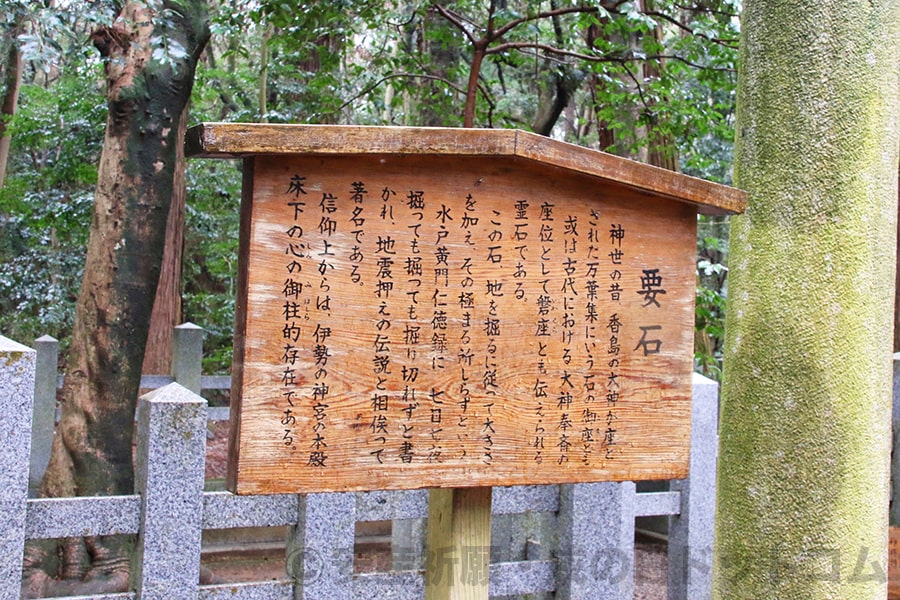 要石
神世の昔 香島の大神が座と
された万葉集にいう石の御座とも
或は古代における大神奉斎の
座位として磐座とも伝えられる
いわくら
霊石である。
この石、地を掘るに従って大きさ
を加え、その極まる所しらずという
水戸黄門仁徳録に 七日七夜
掘っても掘っても掘り切れずと書
かれ、地震押えの伝説と相俟って
著名である。
信仰上からは、伊勢の神宮の本殿
床下の心の御柱的存在である。
しん みはしら